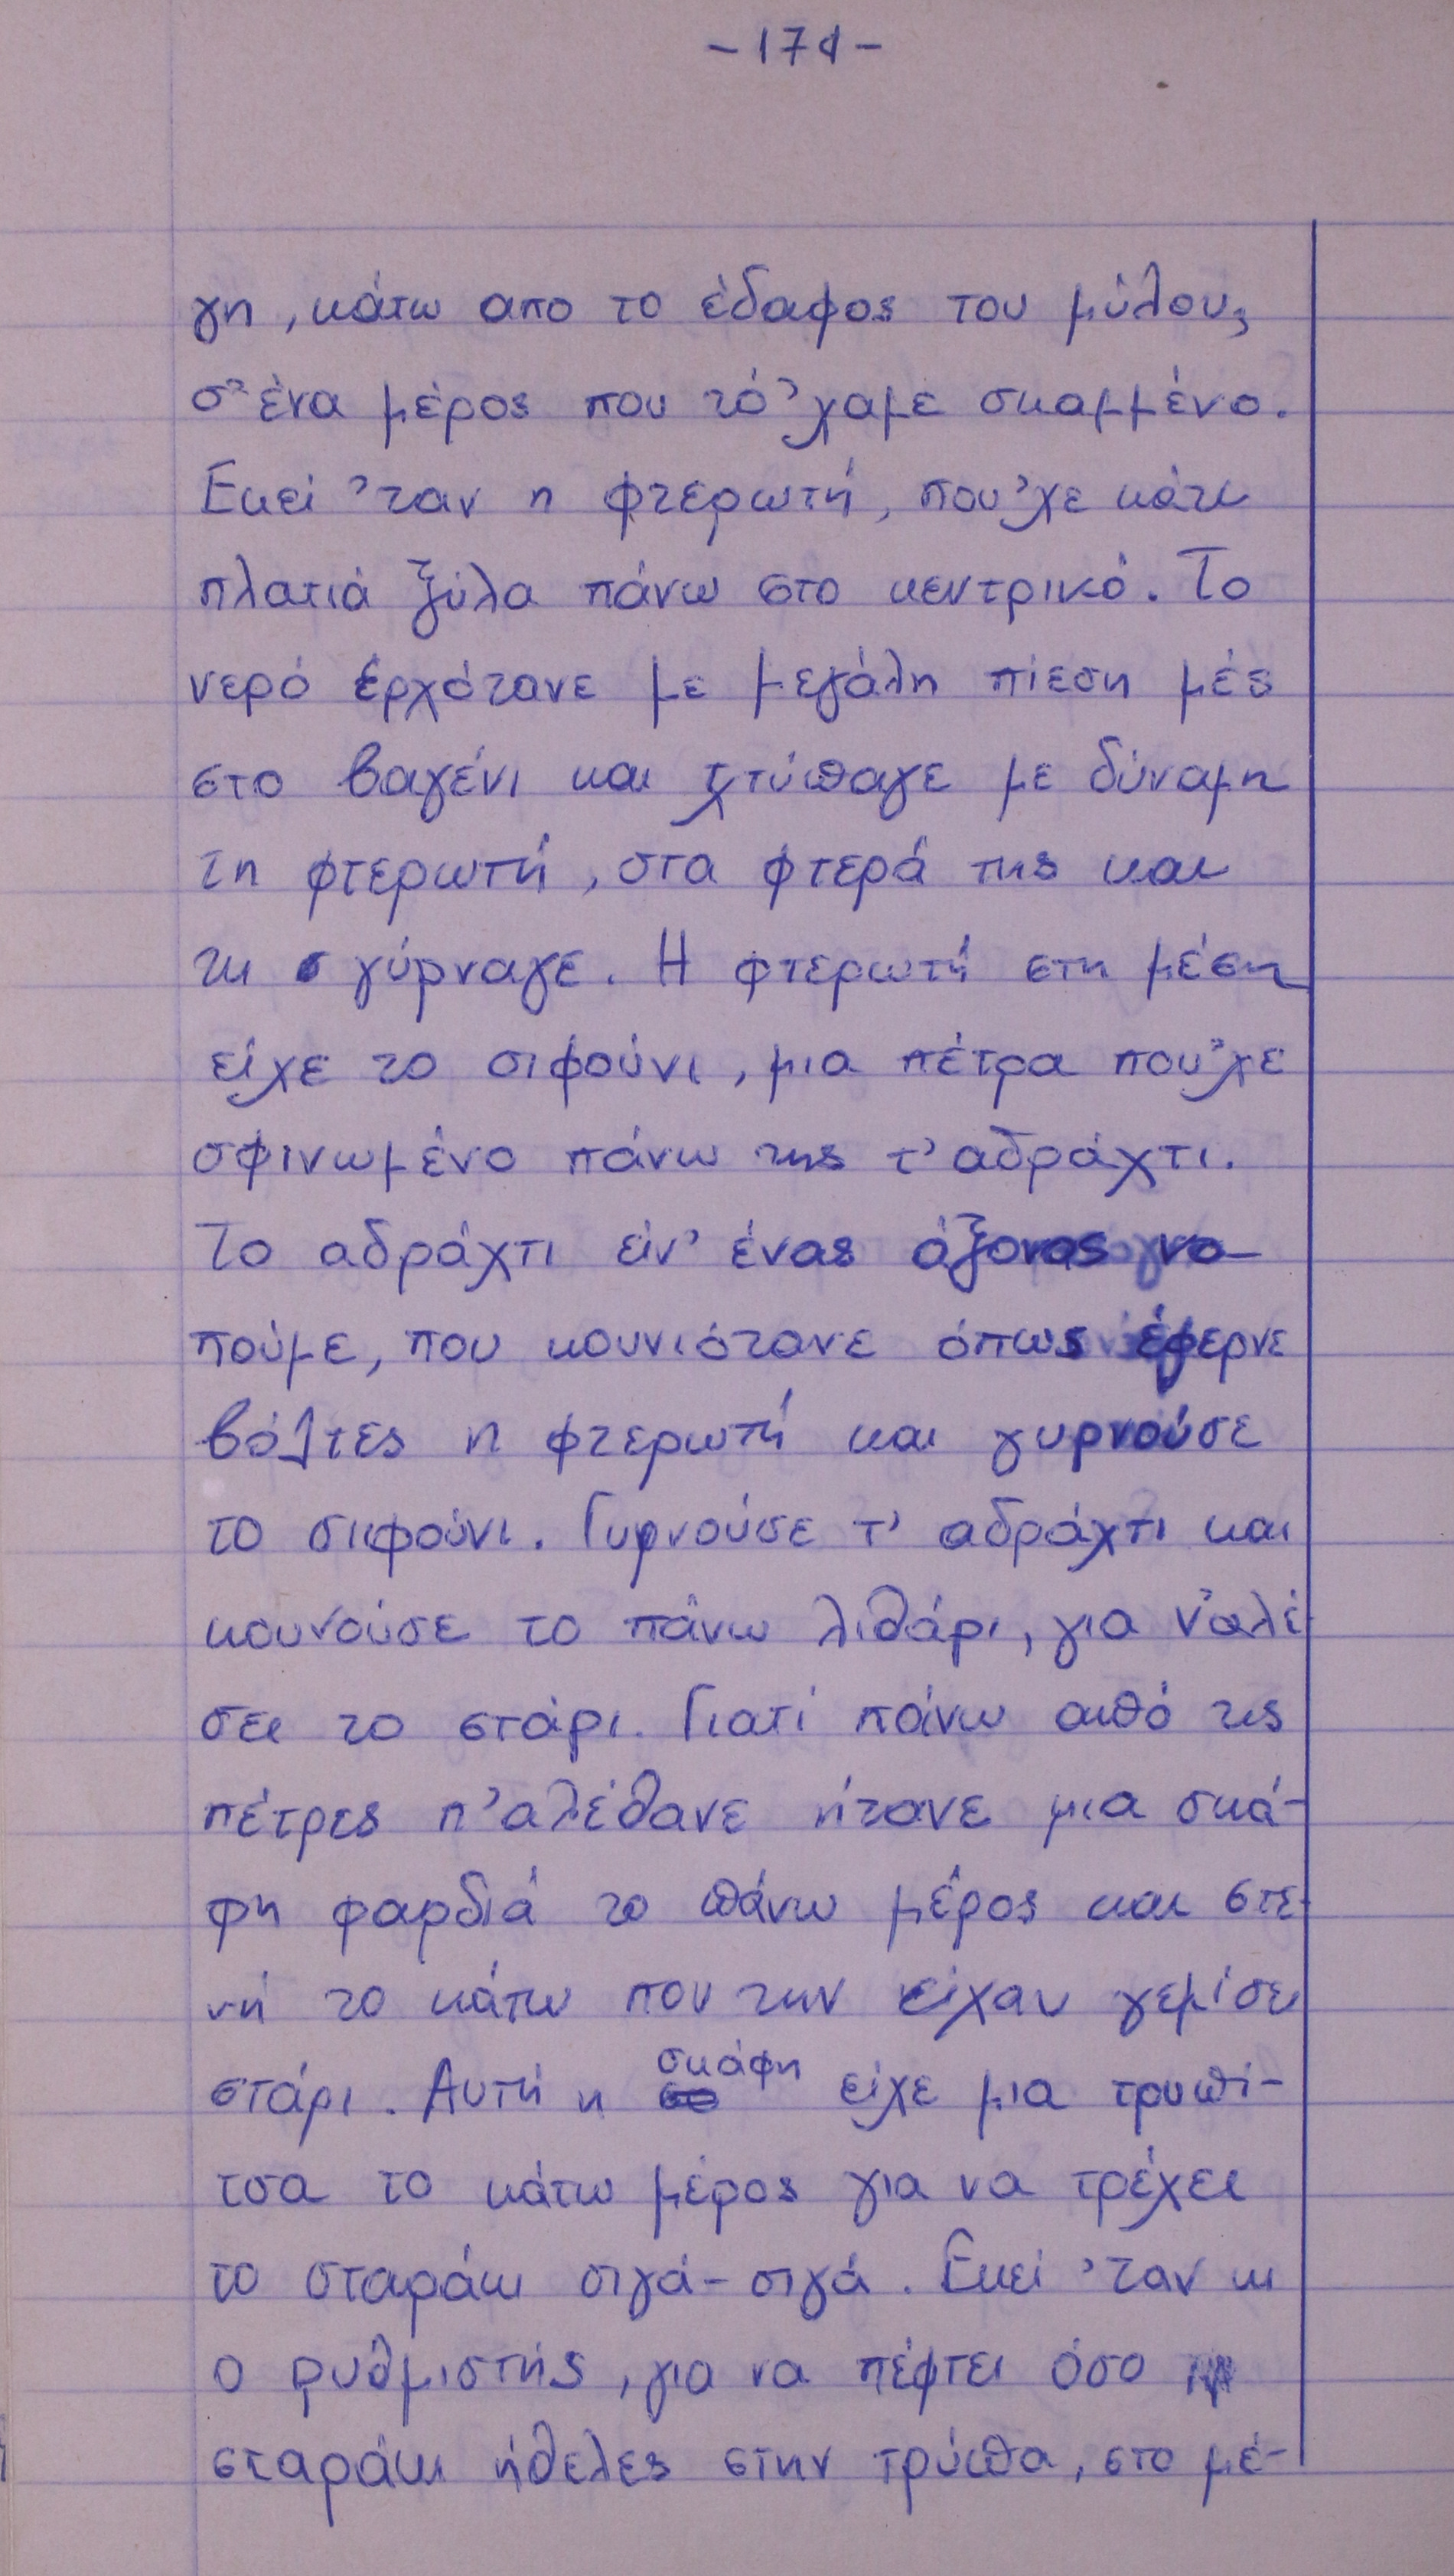 -171-
γη, κάτω απο το έδαφος του μύλου,
σ' ένα μέρος που τό 'χαμε σκαμμένο.
Εκεί 'ταν η φτερωτή, που 'χε κάτι
πλατιά ξύλα πάνω στο κεντρικό. Το
νερό έρχότανε με μεγάλη πίεση μές
στο βαγένι και χτύπαγε με δύναμη
τη φτερωτή, στα φτερά της και
τη γύρναγε. Η φτερωτή στη μέση
είχε το σιφούνι, μια πέτρα που 'χε
σφινωμένο πάνω της τ' αδράχτι.
Το αδράχτι είν' ένας άξονας να
πούμε, που κουνιότανε όπως έφερνε
βόλτες η φτερωτή και γυρνούσε
το σιφούνι. Γυρνούσε τ' αδράχτι και
κουνούσε το πάνω λιθάρι, για ν' αλέ
σει το στάρι. Γιατί πάνω από τις
πέτρες π' αλέθανε ήτανε μια σκά-
φη φαρδιά το πάνω μέρος και στε-
νή το κάτω που την είχαν γεμίσει
στάρι. Αυτή η σκάφη είχε μια τρυπί-
τσα το κάτω μέρος για να τρέχει
το σταράκι σιγά-σιγά. Εκεί 'ταν κι
ο ρυθμιστής, για να πέφτει όσο
σταράκι ήθελες στην τρύπα, στο μέ-